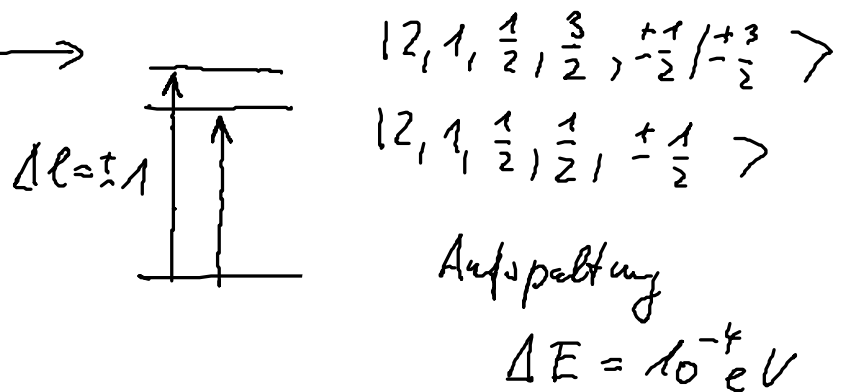 |2, 1, 1/2, 3/2, ±1/2/±3/2 >
|2, 1, 1/2, 1/2, ±1/2 >
Δl=±1
Aufspaltung
ΔE = 10⁻⁴ eV